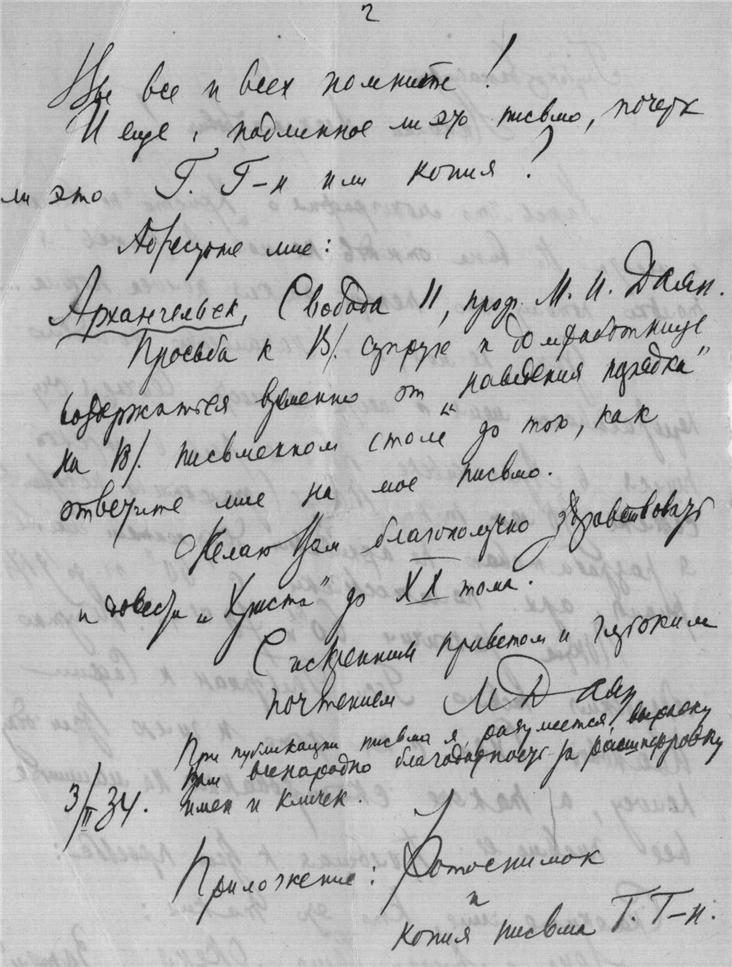 2
Вы все и всех помните!
И еще, подлинное ли это письмо, почерк
ли это Г. Г-н или копия?
Адресуйте мне:
Архангельск, Свобода 11, проф. М. И. Даян.
Просьба к В/. супруге и домработнице
содержаться временно от „наведения порядка"
на В/. письменном столе до того, как
ответите мне на мое письмо.
Желаю Вам благополучно здравствовать
и довести „Христа" до XX тома.
С искренним приветом и глубоким
почтением М Даян
При публикации письма я, разумеется, выражу
Вам всенародно благодарность за расшифровку
имен и кличек.
3/II 34.
Приложение: Фотоснимок
и
копия письма Г. Г-н.